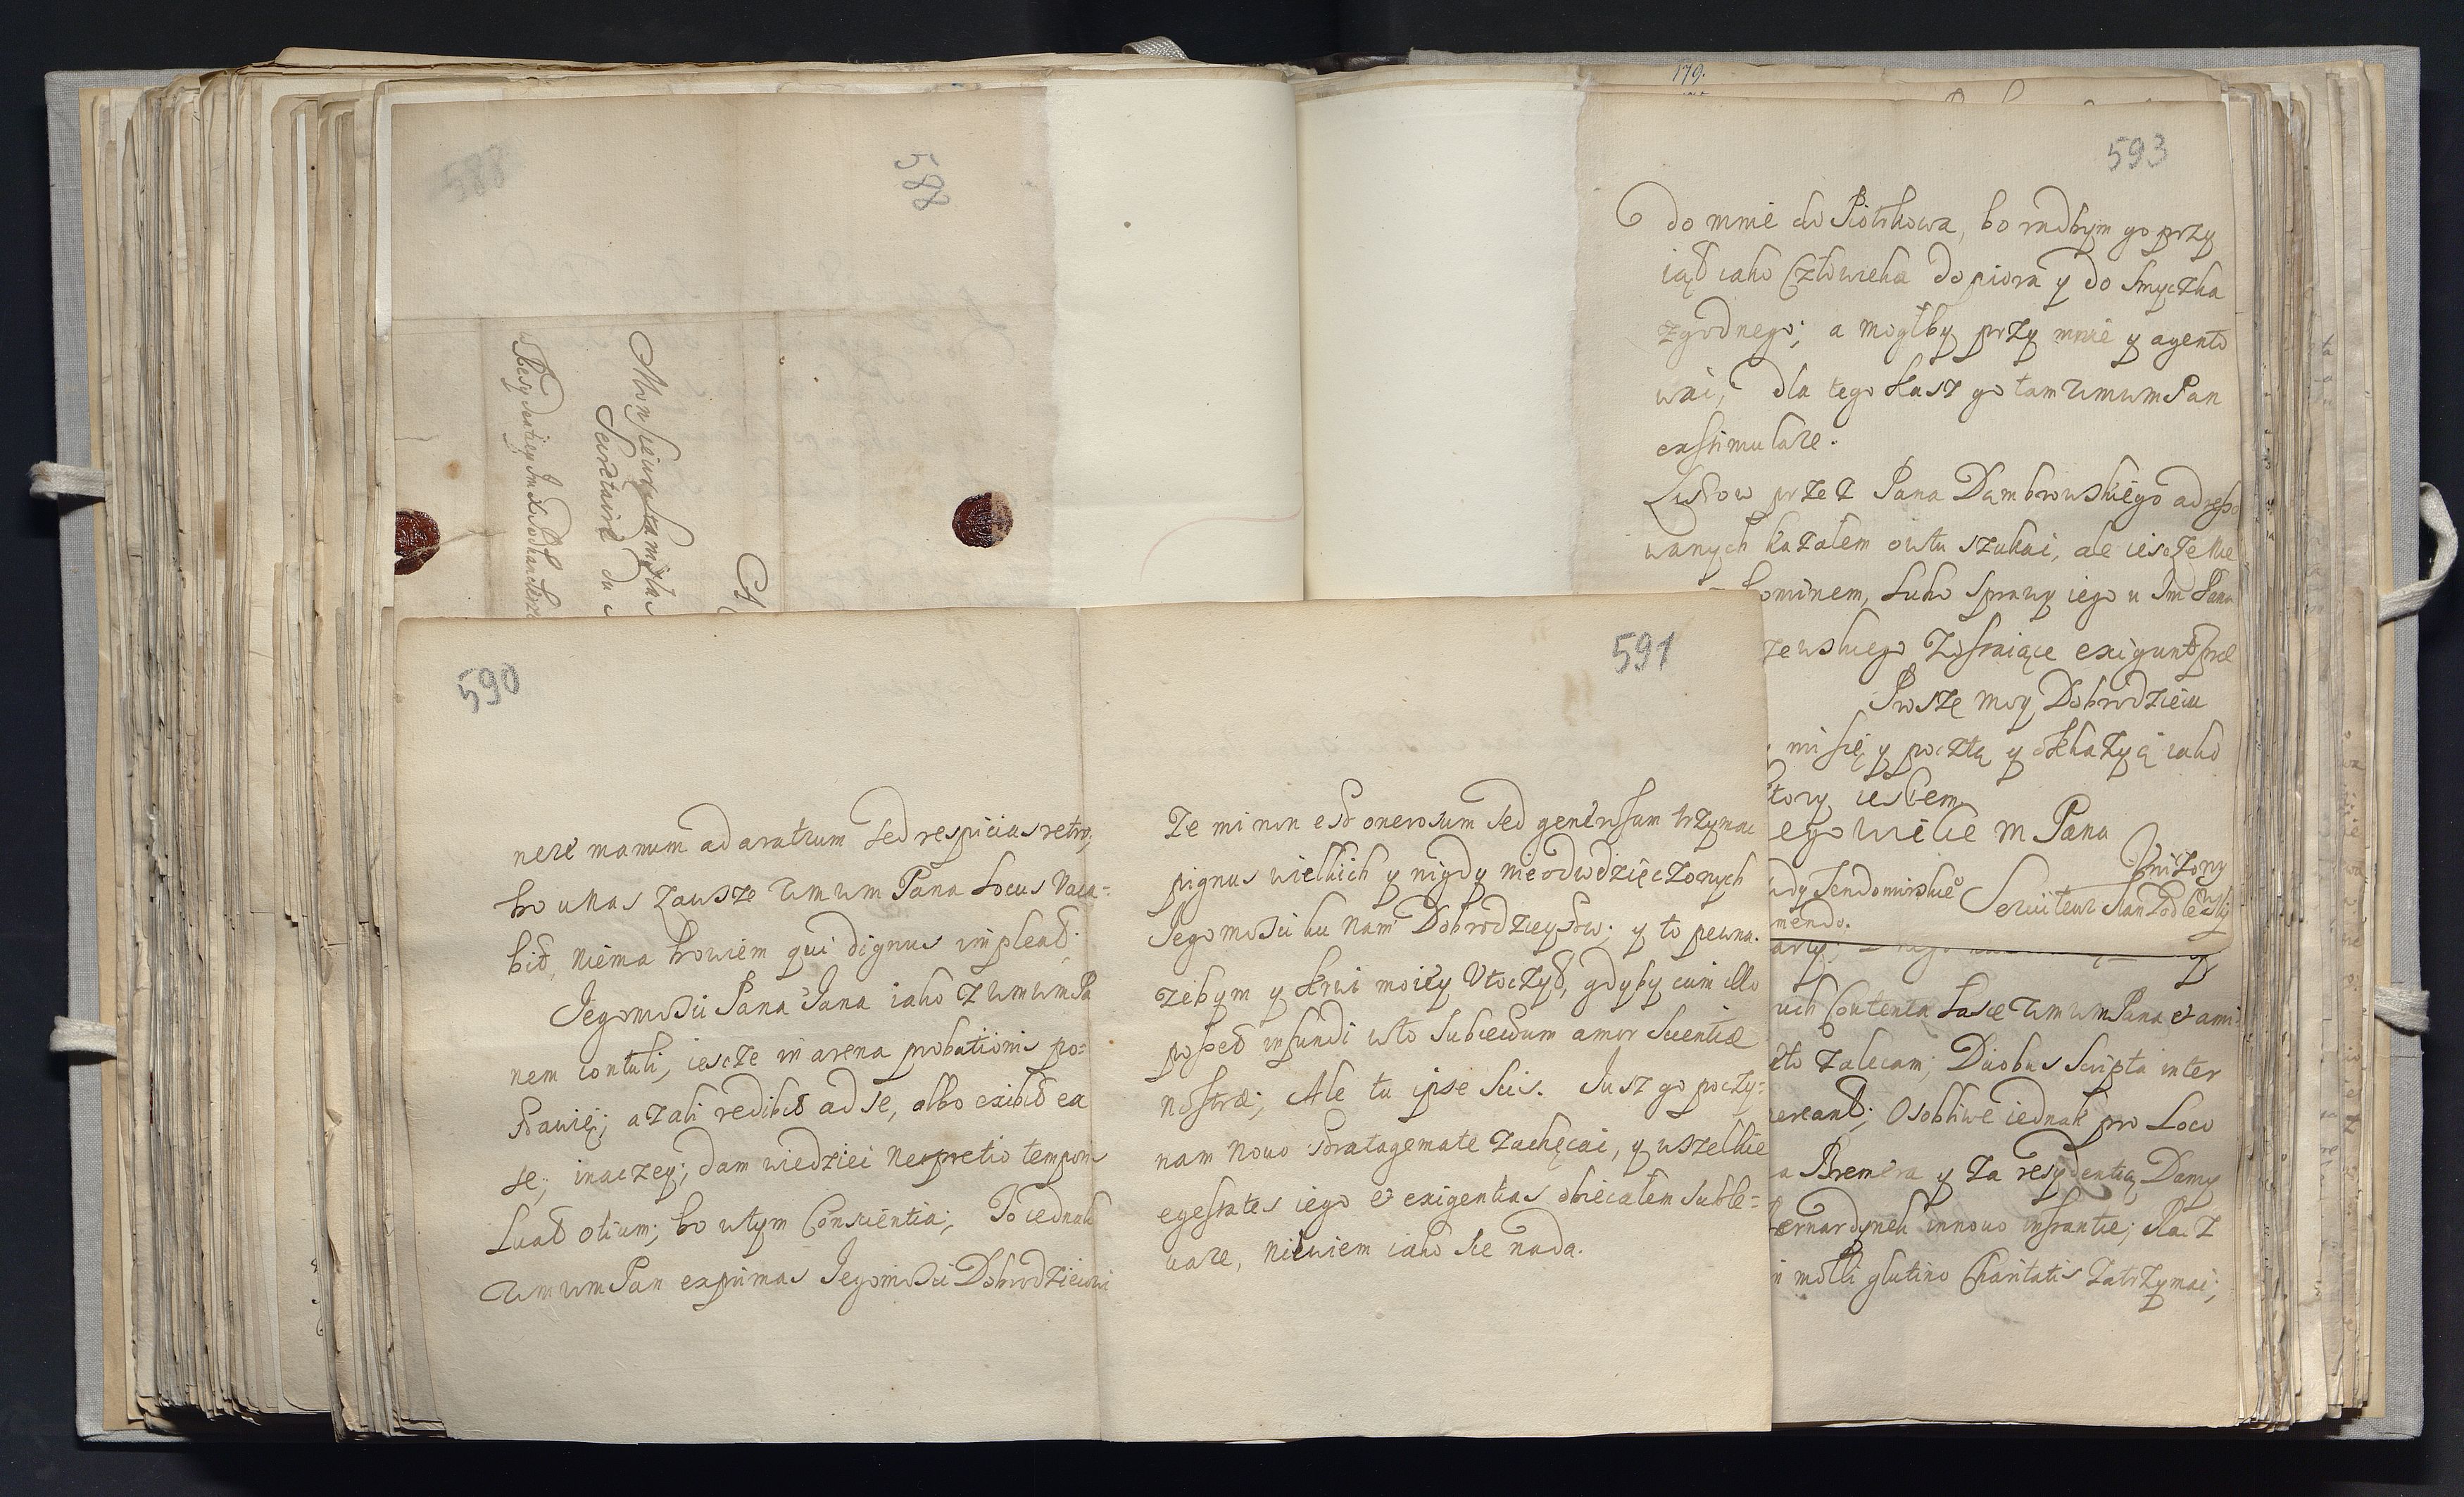 588
588
Monsieur
Secretaire du
A
179.
593
do mnie do Piotrkowa, bo radbym go przy
iął iako Człowieka do piora y do smyczka
zgodnego; a mogłby przy mnie y agento
wać, dla tego Kasz go tam WmwmPan
exstimulare.
Listow przez Pana Dambrowskiego adresso
wanych kazałem owtu szukać, ale ieszcze nie
hominem, Luko sprawy iego u Im Pana
zewskiego zostaiące exigunt
Prosze moy Dobrodzieiu
mi się y pocztą y okkazyą iako
ktory iestem
ego wielce m Pana
Uniżony
Sendomirskie Serviteur
mendo.
590
nere manum ad aratrum sed respicias retro,
bo u nas zawsze Wmwm Pana Locus vaca=
bit, niema bowiem qui dignus impleat.
Jegomości Pana Jana iako z WmwmPa
nem contuli, ieszcze in arena probationis po=
stawię; azali redibit ad se, albo exibit ex
se; inaczey; dam wiedzieć ne pretio temporis
Luat otium; bo wtym Conscientia; To iednak
WmwmPan exprimas Jegomości Dobrodzieiowi
591
Ze mi non est onerosum sed generosum trzymac
pignus wielkich y nigdy nieodwdzięczonych
Jegomości ku nam Dobrodzieystw; y to pewna.
żebym y krwi moiey utoczył, gdyby cum illo
posset infundi w to subiectum amor scientiæ
nostræ; Ale tu ipse scis. Iusz go poczy=
nam novo stratagemate zachęcać, y wszelkie
egestates iego et exigentias obiecałem suble=
vare, niewiem iako sie nada.
uch Contenta Lasce WmwmPana et ami
zalecam; Duobus scripta inter
ereant; Osobliwe iednak pro Loco
a Bremera y za resydentią Damy
Bernardynek innovo instantie; Racz
in molli glutino Charitatis zatrzymać;